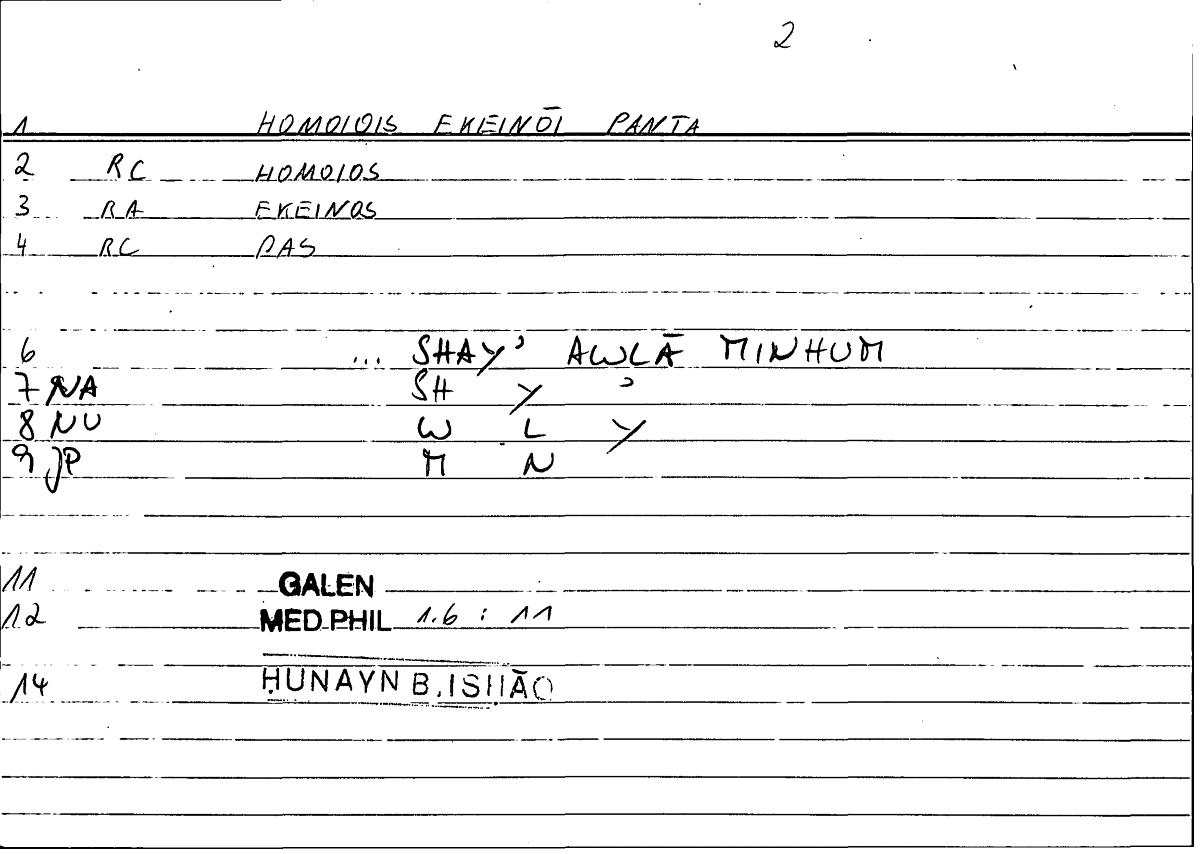 2
1 HOMOIOIS EKEINŌI PANTA
2 RC HOMOIOS
3 RA EKEINOS
4 RC PAS
6 ... SHAY' AWLĀ MINHUM
7 NA SH Y '
8 NU W L Y
9 JP M N
11 GALEN
12 MED.PHIL 1.6 : 11
14 ḤUNAYN B.ISḤĀQ